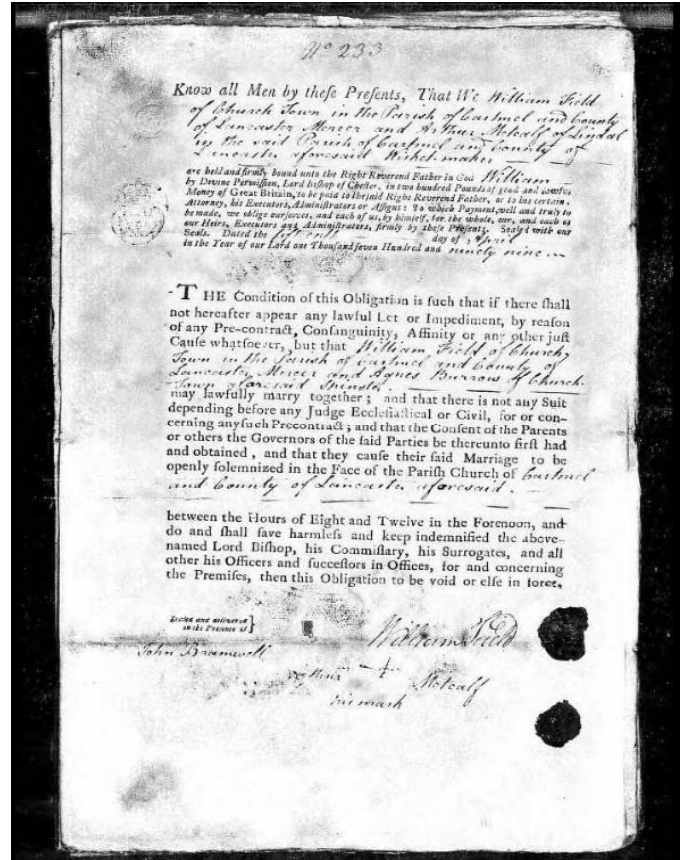 No 233
Know all Men by these Presents, That We William Field
of Church Town in the Parish of Cartmel and County
of Lancaster Mercer and Arthur Metcalf of Lindal
in the said Parish of Cartmel and County of
Lancaster aforesaid Wisket-maker
are held and firmly bound unto the Right Reverend Father in God William
by Devine Permission, Lord Bishop of Chester, in two hundred Pounds of good and lawful
Money of Great Britain, to be paid to the said Right Reverend Father, or to his certain
Attorney, his Executors, Administrators or Assigns: To which Payment, well and truly to
be made, we oblige ourselves, and each of us, by himself, for the whole, our, and each of
our Heirs, Executors and Administrators, firmly by these Presents. Sealed with our
Seals. Dated the day of April
in the Year of our Lord one Thousand seven Hundred and ninety nine
THE Condition of this Obligation is such that if there shall
not hereafter appear any lawful Let or Impediment, by reason
of any Pre-contract, Consanguinity, Affinity or any other just
Cause whatsoever, but that William Field of Church
Town in the Parish of Cartmel and County of
Lancaster Mercer and Agnes Burrow of Church
Town aforesaid Spinster
may lawfully marry together; and that there is not any Suit
depending before any Judge Ecclesiastical or Civil, for or con-
cerning any such Precontract; and that the Consent of the Parents
or others the Governors of the said Parties be thereunto first had
and obtained, and that they cause their said Marriage to be
openly solemnized in the Face of the Parish Church of Cartmel
and County of Lancaster aforesaid.
between the Hours of Eight and Twelve in the Forenoon, and
do and shall save harmless and keep indemnified the above-
named Lord Bishop, his Commissary, his Surrogates, and all
other his Officers and successors in Offices, for and concerning
the Premises, then this Obligation to be void or else in force.
Sealed and delivered
in the Presence of
William Field
John Bramwell
Arthur + Metcalf
his mark